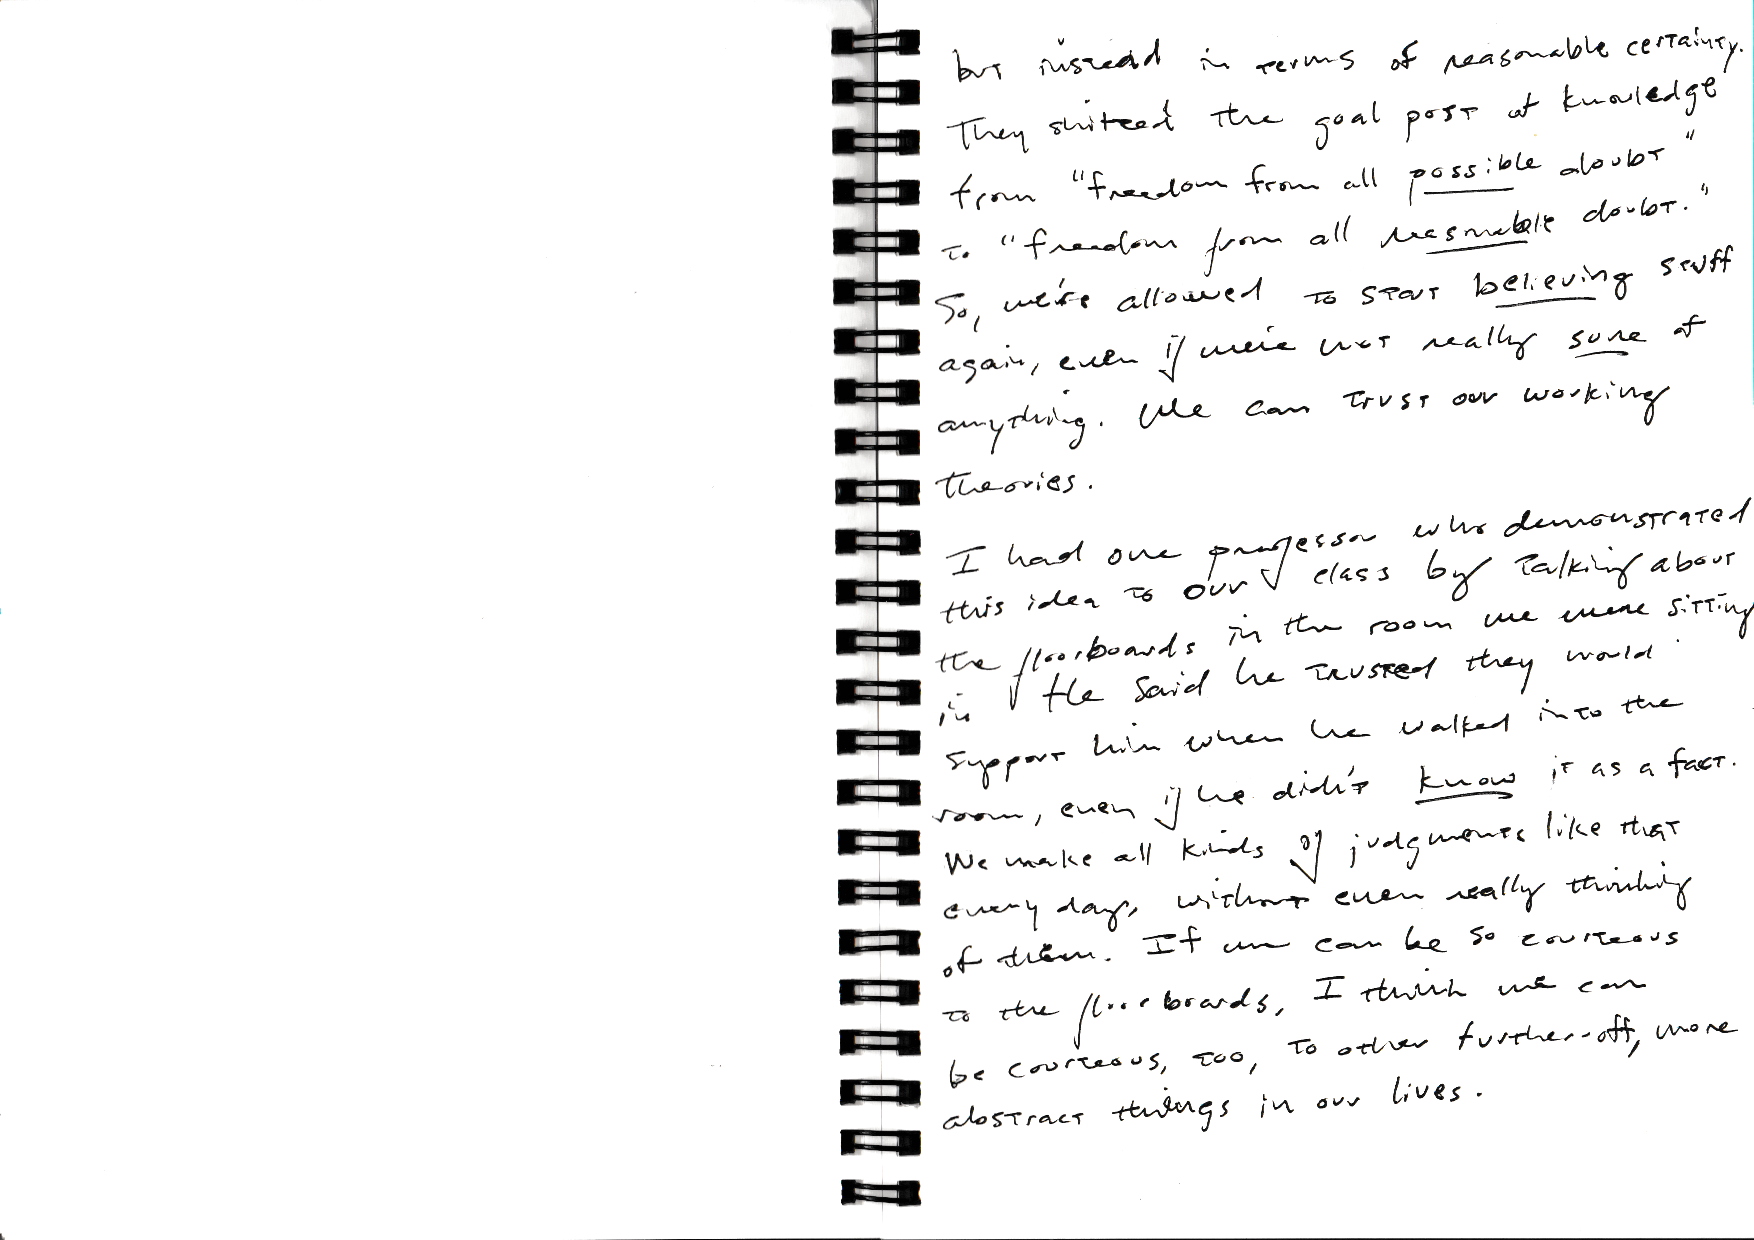 but instead in terms of reasonable certainty.
They shifted the goal post of knowledge
from "freedom from all possible doubt"
to "freedom from all reasonable doubt."
So, we're allowed to start believing stuff
again, even if we're not really sure of
anything. We can trust our working
theories.
I had one professor who demonstrated
this idea to our class by talking about
the floorboards in the room we were sitting
in. He said he trusted they would
support him when he walked into the
room, even if he didn't know it as a fact.
We make all kinds of judgments like that
every day, without even really thinking
of them. If we can be so courteous
to the floorboards, I think we can
be courteous, too, to other further-off, more
abstract things in our lives.